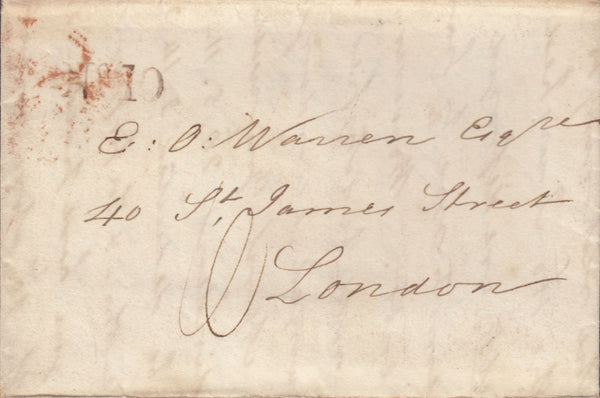 No 10
E: O: Warren Esqre
40 St. James Street
London